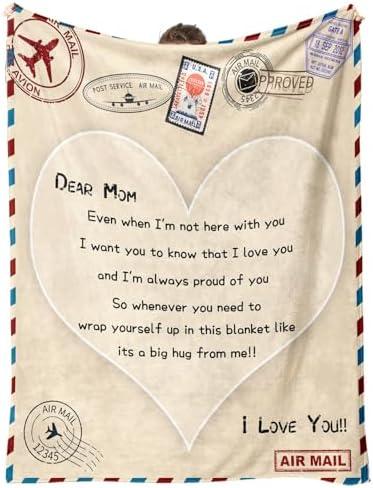 AVION
POST SERVICE AIR MAIL
U.S.A.
AIR MAIL
AIR MAIL
APPROVED
GATE A
18 SEP 2015
DEAR MOM
Even when I'm not here with you
I want you to know that I love you
and I'm always proud of you
So whenever you need to
wrap yourself up in this blanket like
its a big hug from me!!
I LOVE YOU!!
AIR MAIL
12345
AIR MAIL